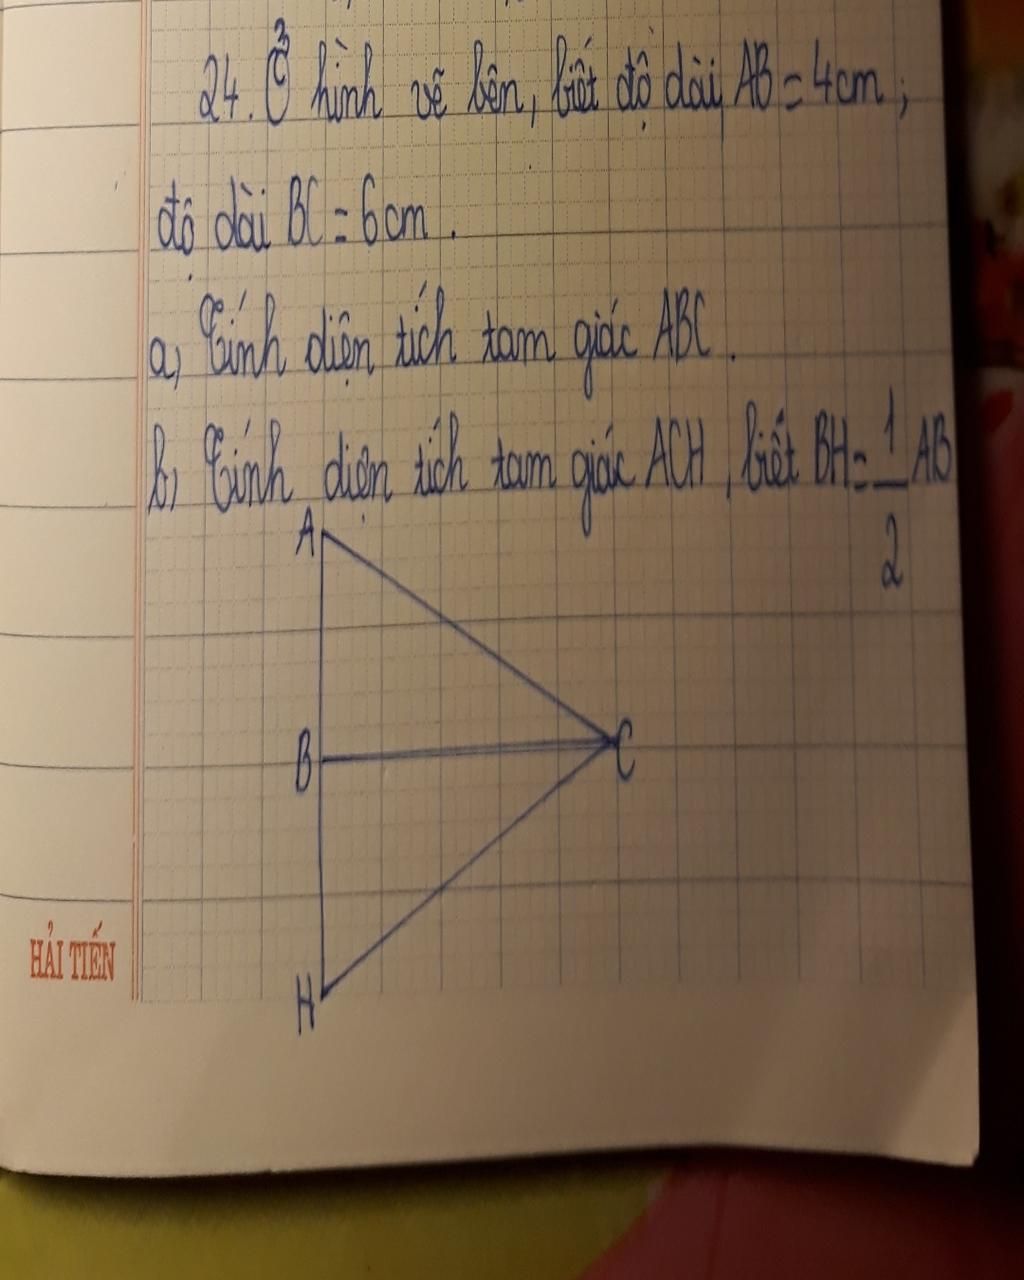 24. Ở hình vẽ bên, biết độ dài AB = 4cm;
độ dài BC = 6cm.
a, Tính diện tích tam giác ABC.
b, Tính diện tích tam giác ACH, biết BH = 1/2 AB
A
B
C
H
HẢI TIẾN